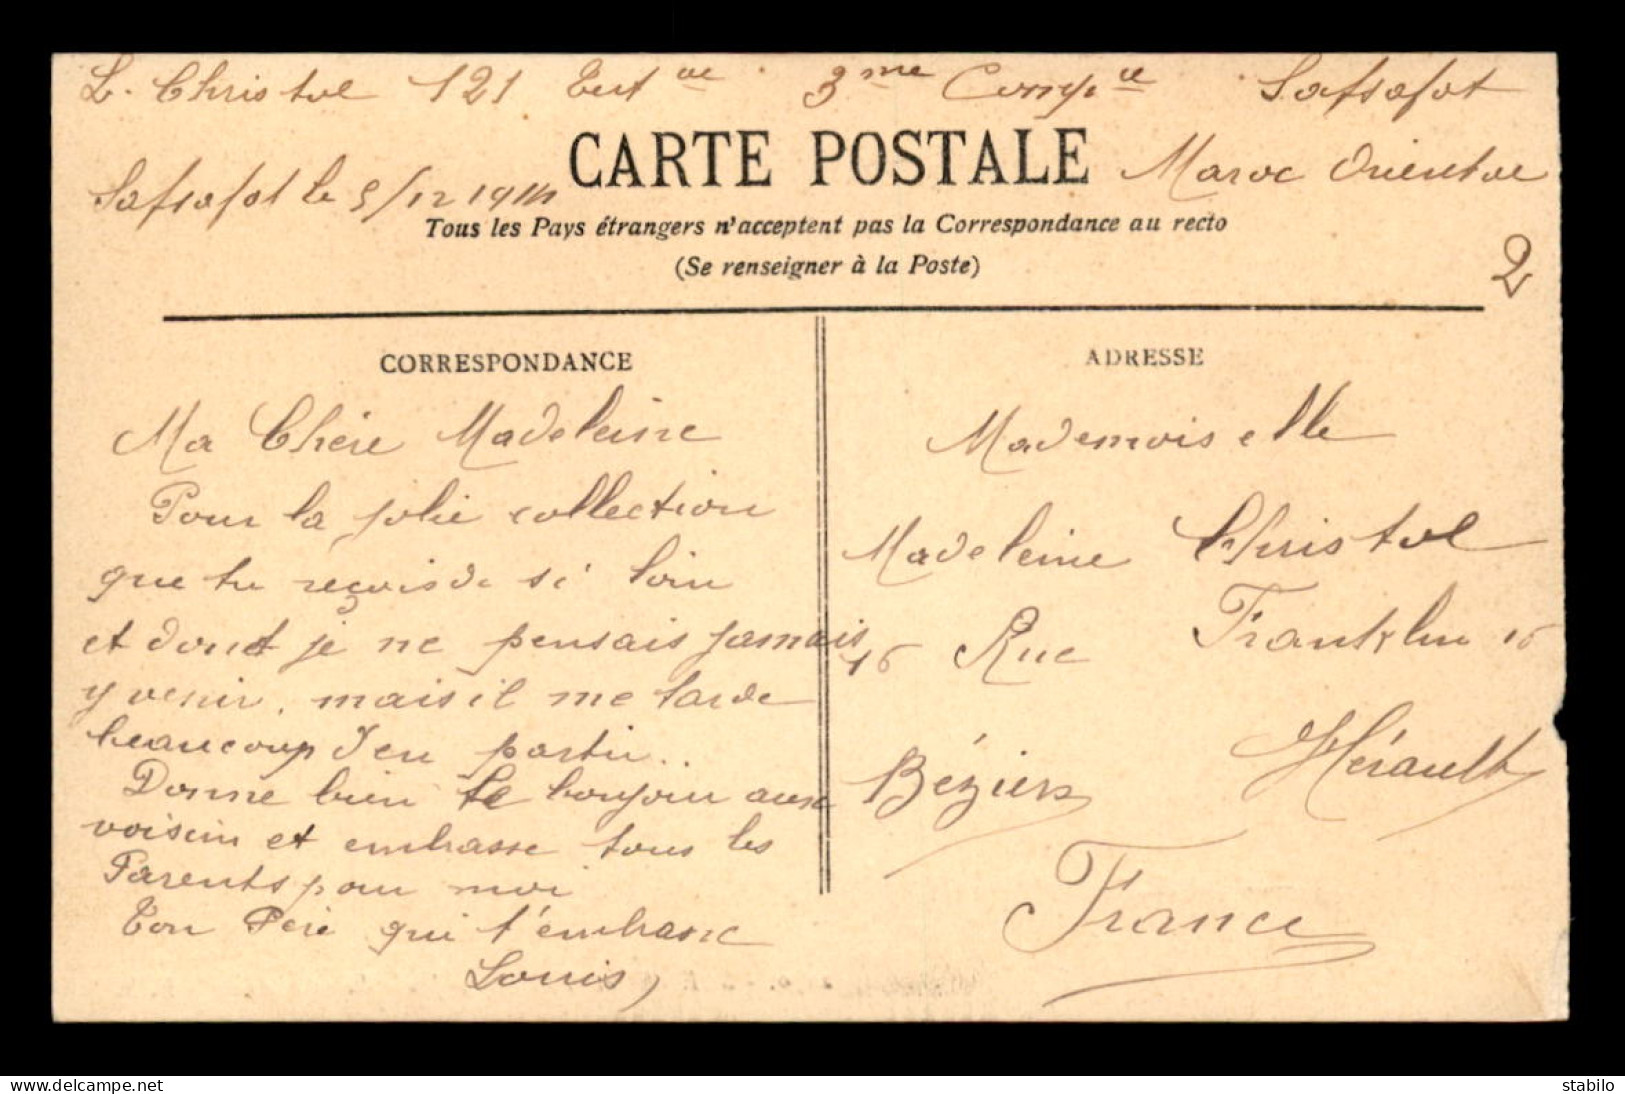 L. Christol 121 Terr ale 3me Comp ie Safsafat
Maroc Oriental
Safsafat le 5/12 1914
CARTE POSTALE
Tous les Pays étrangers n'acceptent pas la Correspondance au recto
(Se renseigner à la Poste)
2
CORRESPONDANCE
Ma Chère Madeleine
Pour la jolie collection
que tu reçois de si loin
et dont je ne pensais jamais
y venir. mais il me tarde
beaucoup d'en partir..
Donne bien le bonjour aux
voisin et embrasse tous les
Parents pour moi
Ton Père qui t'embrasse
Louis
ADRESSE
Mademoiselle
Madeleine Christol
16 Rue Franklin 16
Béziers Hérault
France
stabilo
www.delcampe.net